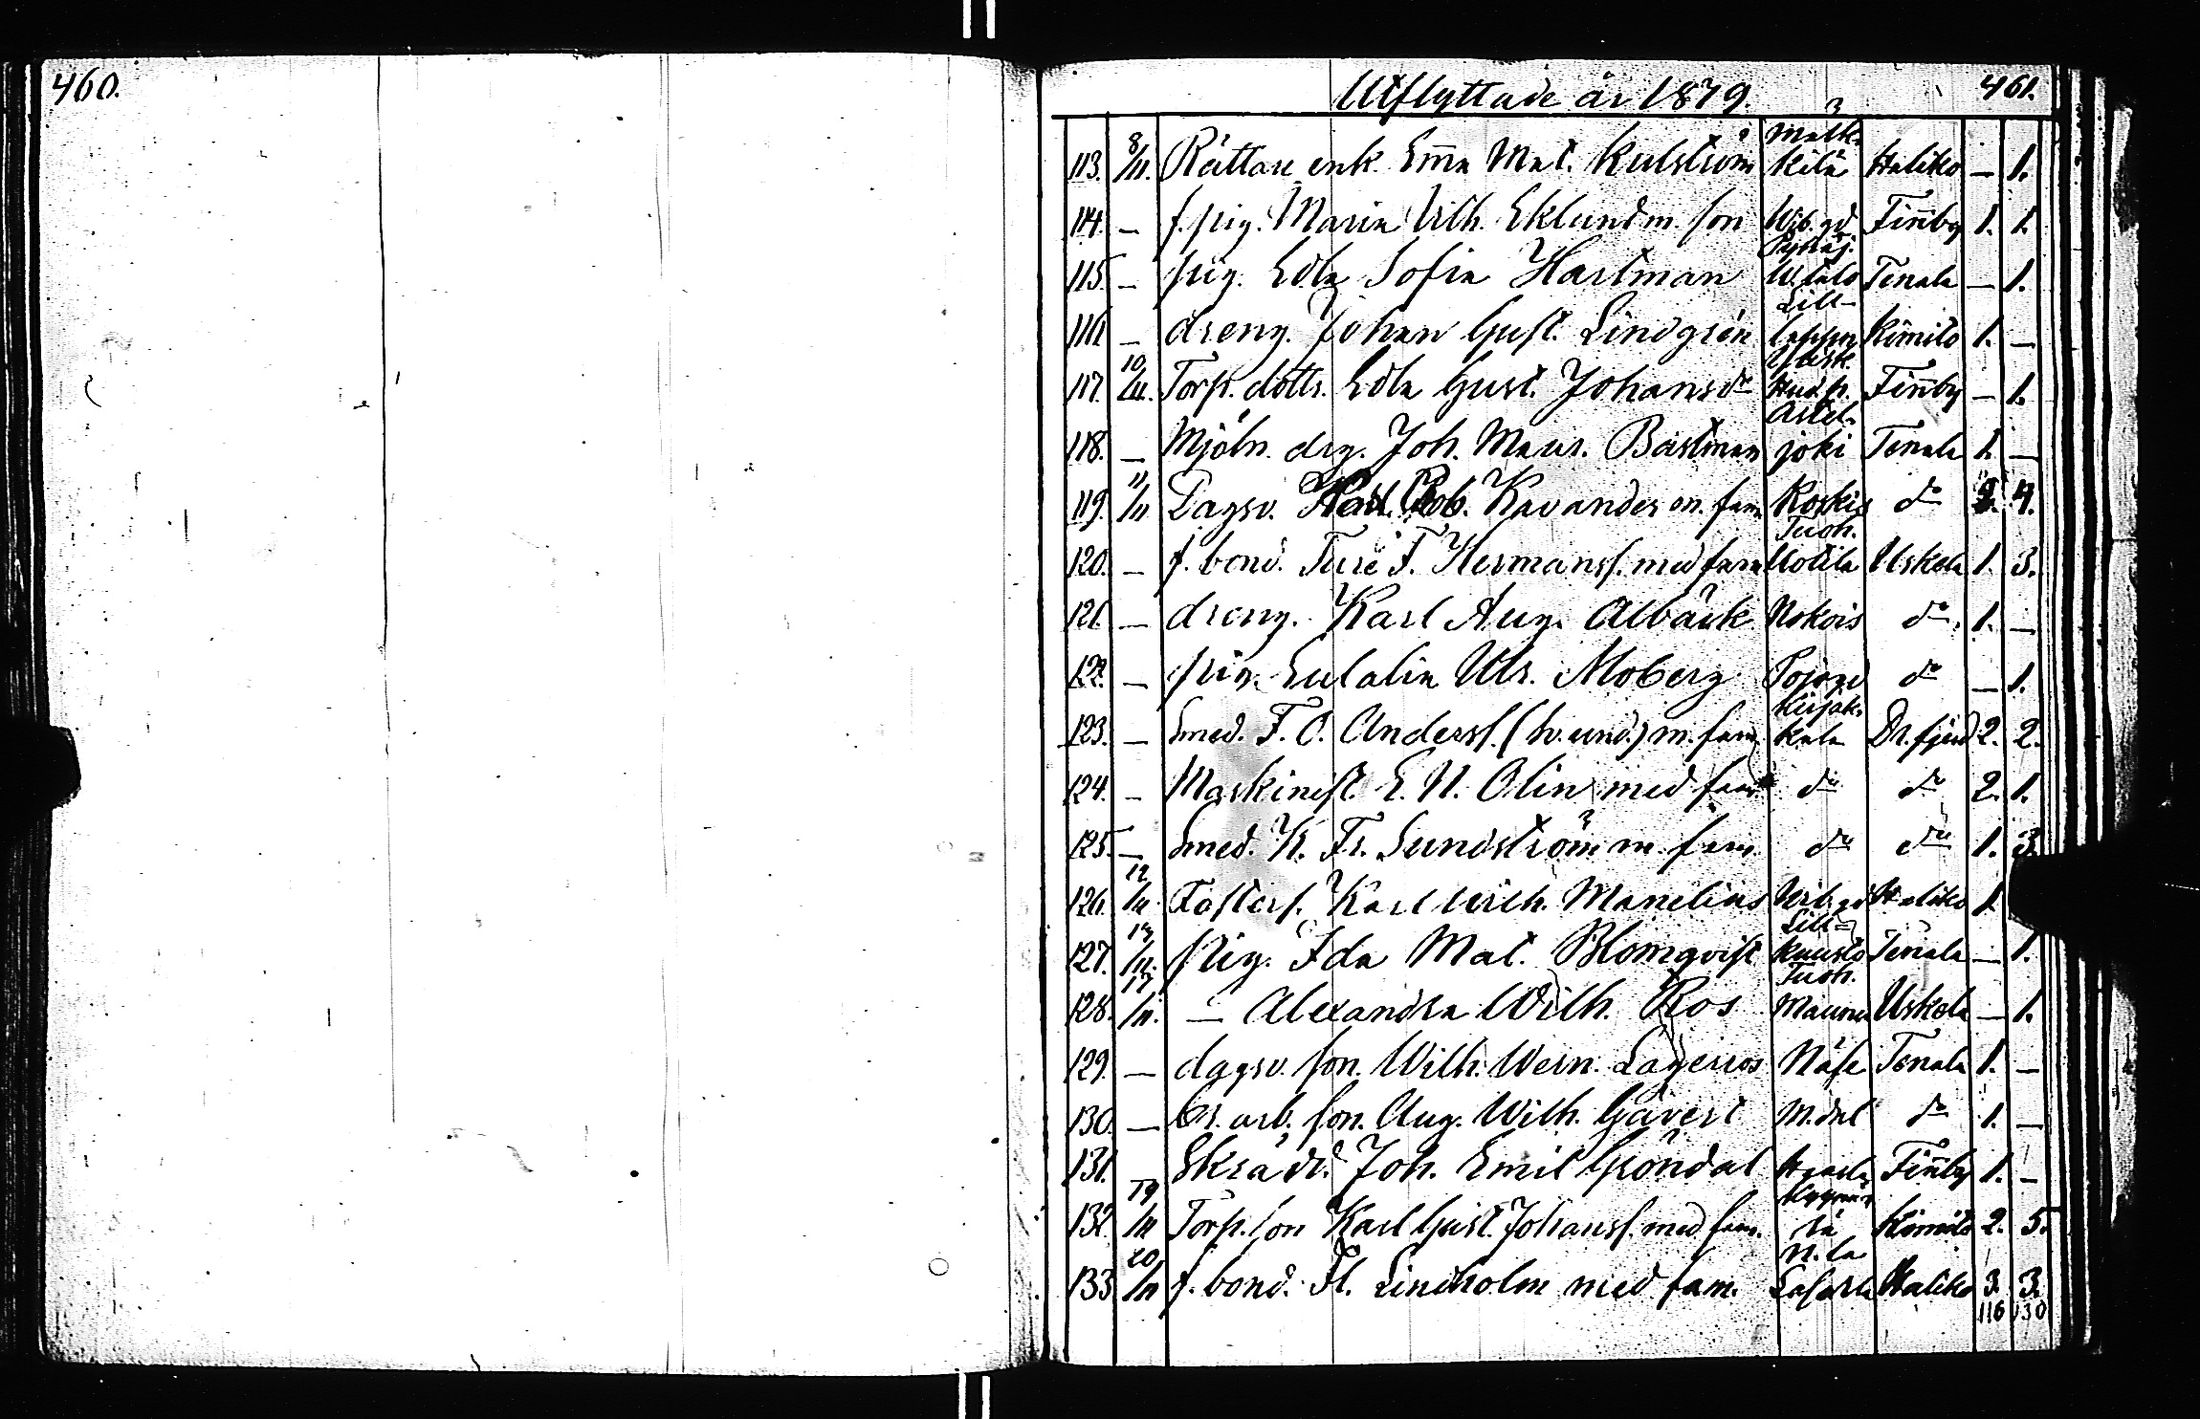 460.
Utflyttade år 1879. 461.
113. 8/11. Rättare enk. Em̄a Mat. Kulström Mälk. Kilä Haliko — 1.
114. — f. pig. Maria Vilh. Eklund m. son Wib. gd Finby 1. 1.
115. — pig. Edla Sofia Hartman Tenala — 1.
116. — dreng. Johan Gust. Lindgrén Lill- Kimito 1. —
117. 10/11. Torp. dottr. Edla Gust. Johansdr Finby — 1.
118. — Mjöln. drg. Joh. Maur. Bastman joki Tenala 1. —
119. 11/11 Dagsv. Karl Rob. Kavander m. fam. Koskis do 2. 4.
120. — f. bond. Ture F. Hermanss. med fam Tuoh. Uotila Uskela 1. 3.
121. — dreng. Karl Aug. Albäck Nokois do 1. —
122. — pig. Eulalia Ulr. Moberg Pojogd do — 1.
123. — Smed. F. O. Anderss. (hv. und.) m. fam. Kirjak- kala Dr. fjerd 2. 2.
124. — Maskinist. E. N. Olin med fam do do 2. 1.
125. — Smed. K. Fr. Sundström m. fam. do do 1. 3.
126. 12/11. Fosters. Karl Wilh. Manelius Wib. gd Haliko 1.
127. 13/11. pig. Ida Mat. Blomqvist Lill- kuusto Tenala — 1.
128. 17/11. — Alexandra Wilh. Ros Tuoh. Maunu Uskela — 1.
129. — dagsv. son. Wilh. Wern. Lagerros Näse Tenala 1. —
130. — br. arb. son. Aug. Wilh. Gävert M. dal do 1. —
131. Skrädd. Joh. Emil Gröndal Finby 1. —
132. 19/11 Torp. son Karl Gust. Johanss. med fam. Kimito 2. 5.
133 20/11 f. bond. Fl. Lindholm med fam. N. la Haliko 3. 3.
116 130